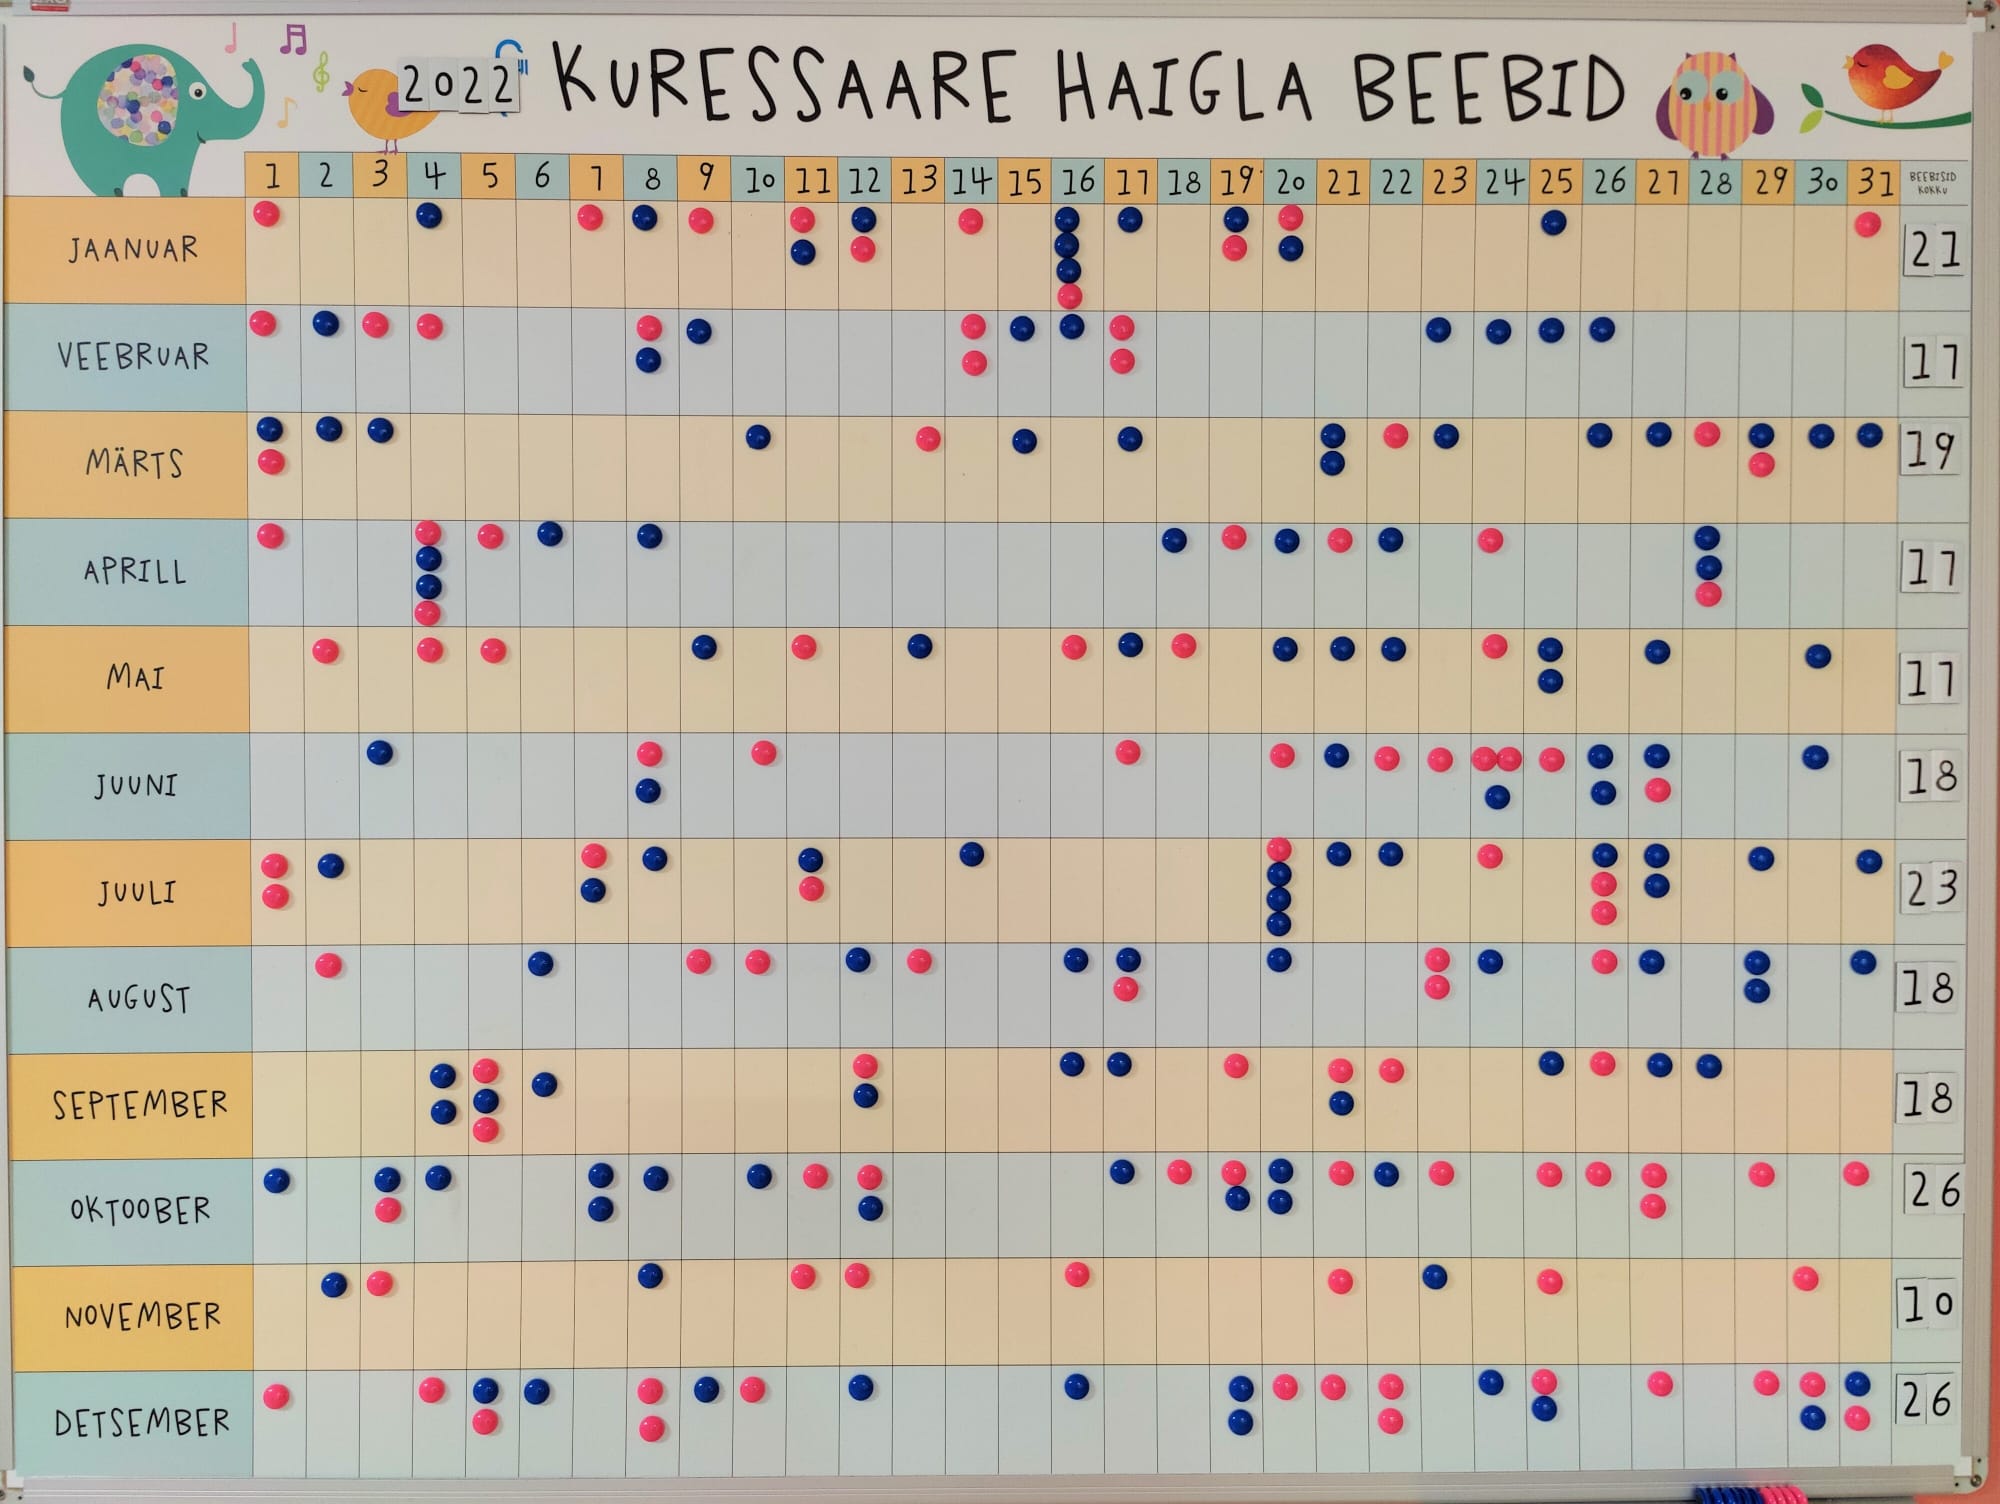 2022 KURESSAARE HAIGLA BEEBID
1 2 3 4 5 6 7 8 9 10 11 12 13 14 15 16 17 18 19 20 21 22 23 24 25 26 27 28 29 30 31 BEEBISID KOKKU
JAANUAR 21
VEEBRUAR 17
MÄRTS 19
APRILL 17
MAI 17
JUUNI 18
JUULI 23
AUGUST 18
SEPTEMBER 18
OKTOOBER 26
NOVEMBER 10
DETSEMBER 26